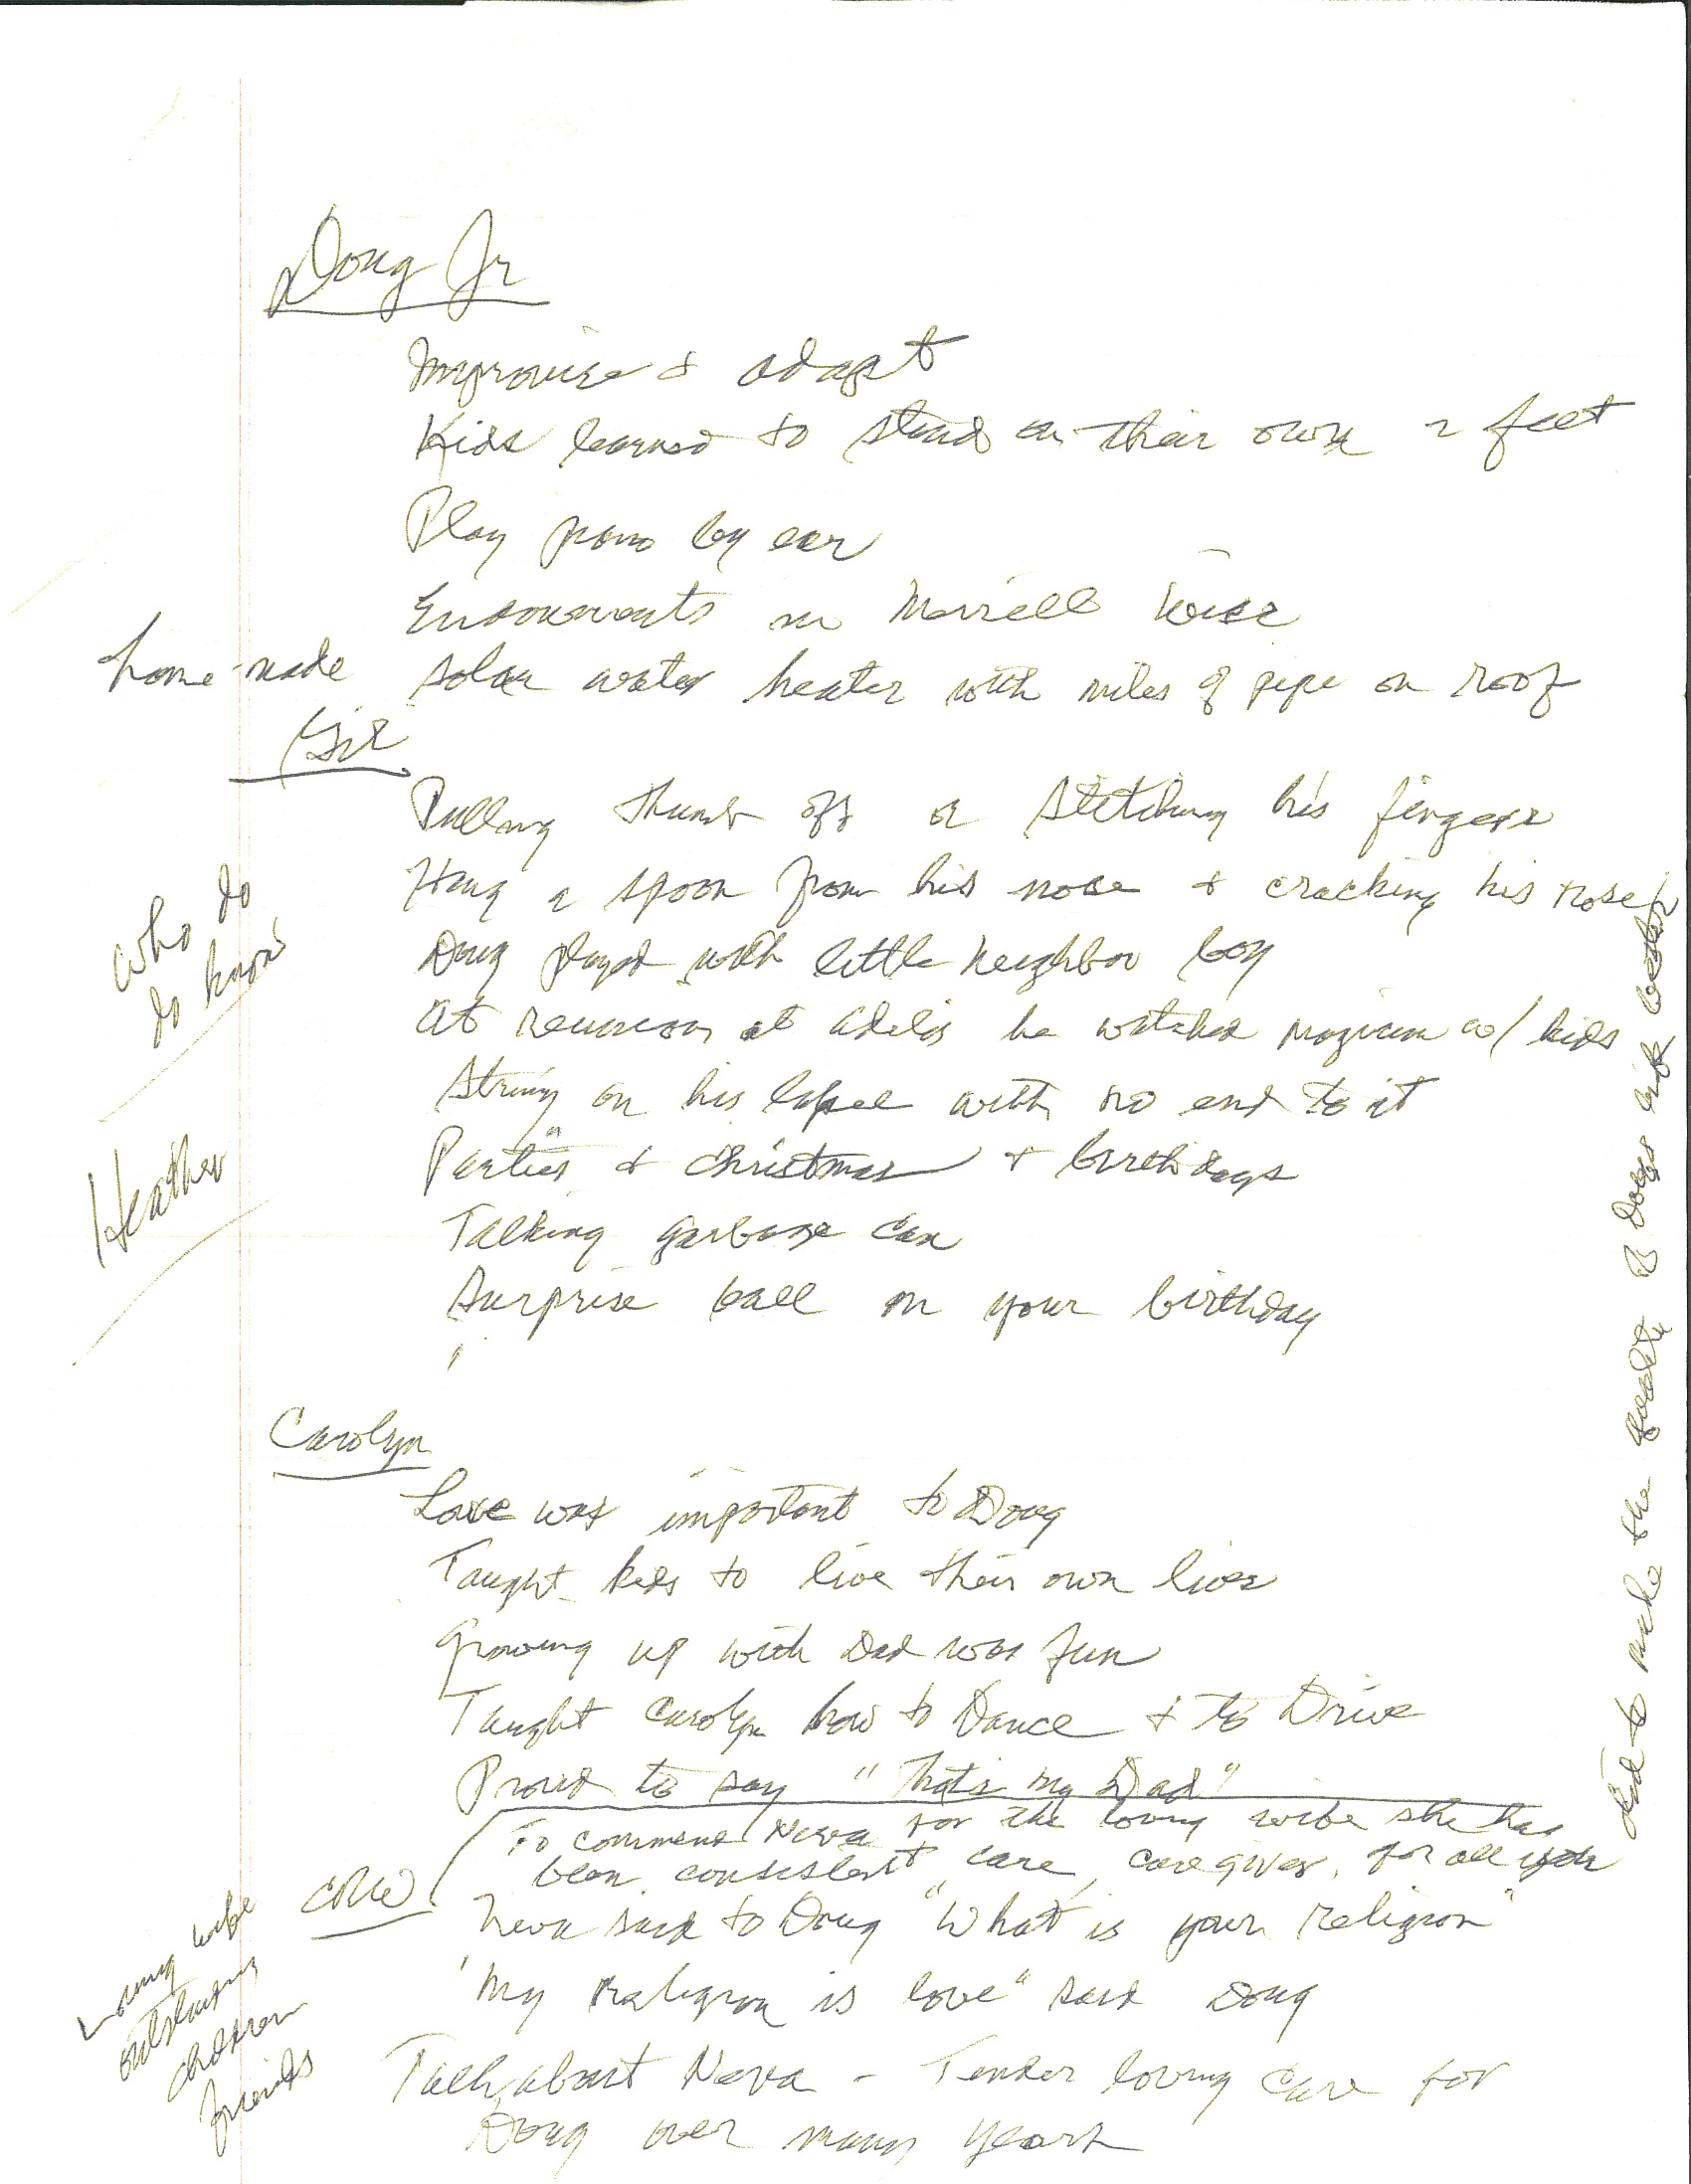 Doug Jr
Improvise & adapt
Kids learned to stand on their own 2 feet
Play piano by ear
in Merrell
home-made solar water heater with miles of pipe on roof
Pulling thumb off or his fingers
Hang a spoon from his nose & cracking his nose
Doug played with little neighbor boy
At reunion at he watched magician w/ kids
String on his lapel with no end to it
Parties & Christmas & birthdays
Talking garbage can
Surprise ball on your birthday
who do
do know
Heather
Carolyn
Love was important to Doug
Taught kids to live their own lives
Growing up with Dad was fun
Taught Carolyn how to Dance & to Drive
Proud to say "That's my Dad"
To commend Neva for the loving wife she has
been, consistent care, care giver, for all
Neva said to Doug "What is your religion"
"My religion is love" said Doug
Talk about Neva - Tender loving care for
Doug over many years
Loving wife
outstanding
children
friends
did to make the quality of Dougs life better